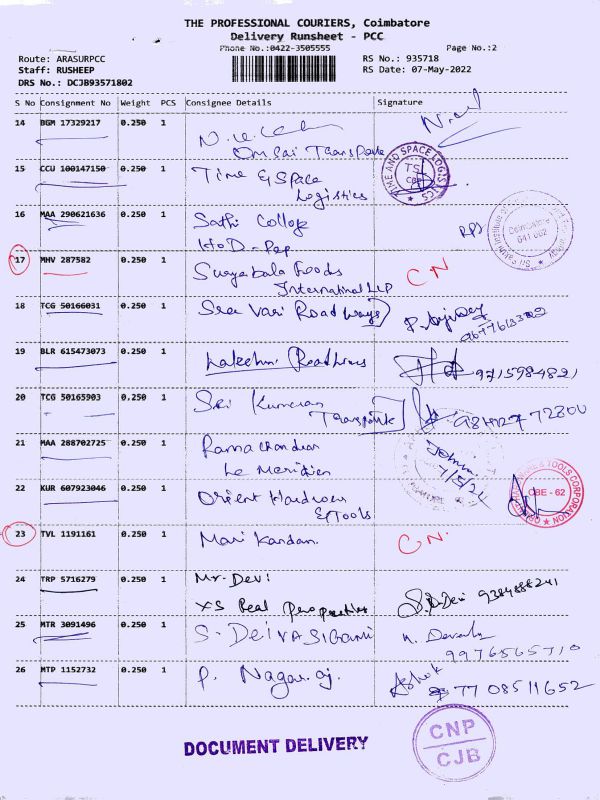 THE PROFESSIONAL COURIERS, Coimbatore
Delivery Runsheet - PCC
Phone No.:0422-3505555
Page No.:2
Route: ARASURPCC
RS No.: 935718
Staff: RUSHEEP
RS Date: 07-May-2022
DRS No.: DCJB93571802
S No Consignment No Weight PCS Consignee Details Signature
14 BGM 17329217 0.250 1
Om Sai Transports
15 CCU 100147150 0.250 1 Time & Space
Logistics
TIME AND SPACE LOGISTICS
TSL
CBE
16 MAA 290621636 0.250 1 Sathi College
HOD - Pep
RPS
Coimbatore
641 062
17 MHV 287582 0.250 1 Suryabala Foods
International LLP
CN
18 TCG 50166031 0.250 1 Sree Vari Roadways
19 BLR 615473073 0.250 1 Lakshmi Roadlines
9715984821
20 TCG 50165903 0.250 1 Sri Kumaran
Transport
21 MAA 288702725 0.250 1 Ramachandran
Le Meridien
22 KUR 607923046 0.250 1 Orient Hardware
& Tools
HARDWARE & TOOLS CORPORATION
CBE - 62
23 TVL 1191161 0.250 1 Mari Kandan.
CN.
24 TRP 5716279 0.250 1 Mr. Devi
XS Real Properties
9384888241
25 MTR 3091496 0.250 1 S. DEIVASIGAMI
9976565710
26 MTP 1152732 0.250 1 P. Nagaraj.
Ashok
7708511652
DOCUMENT DELIVERY
CNP
CJB